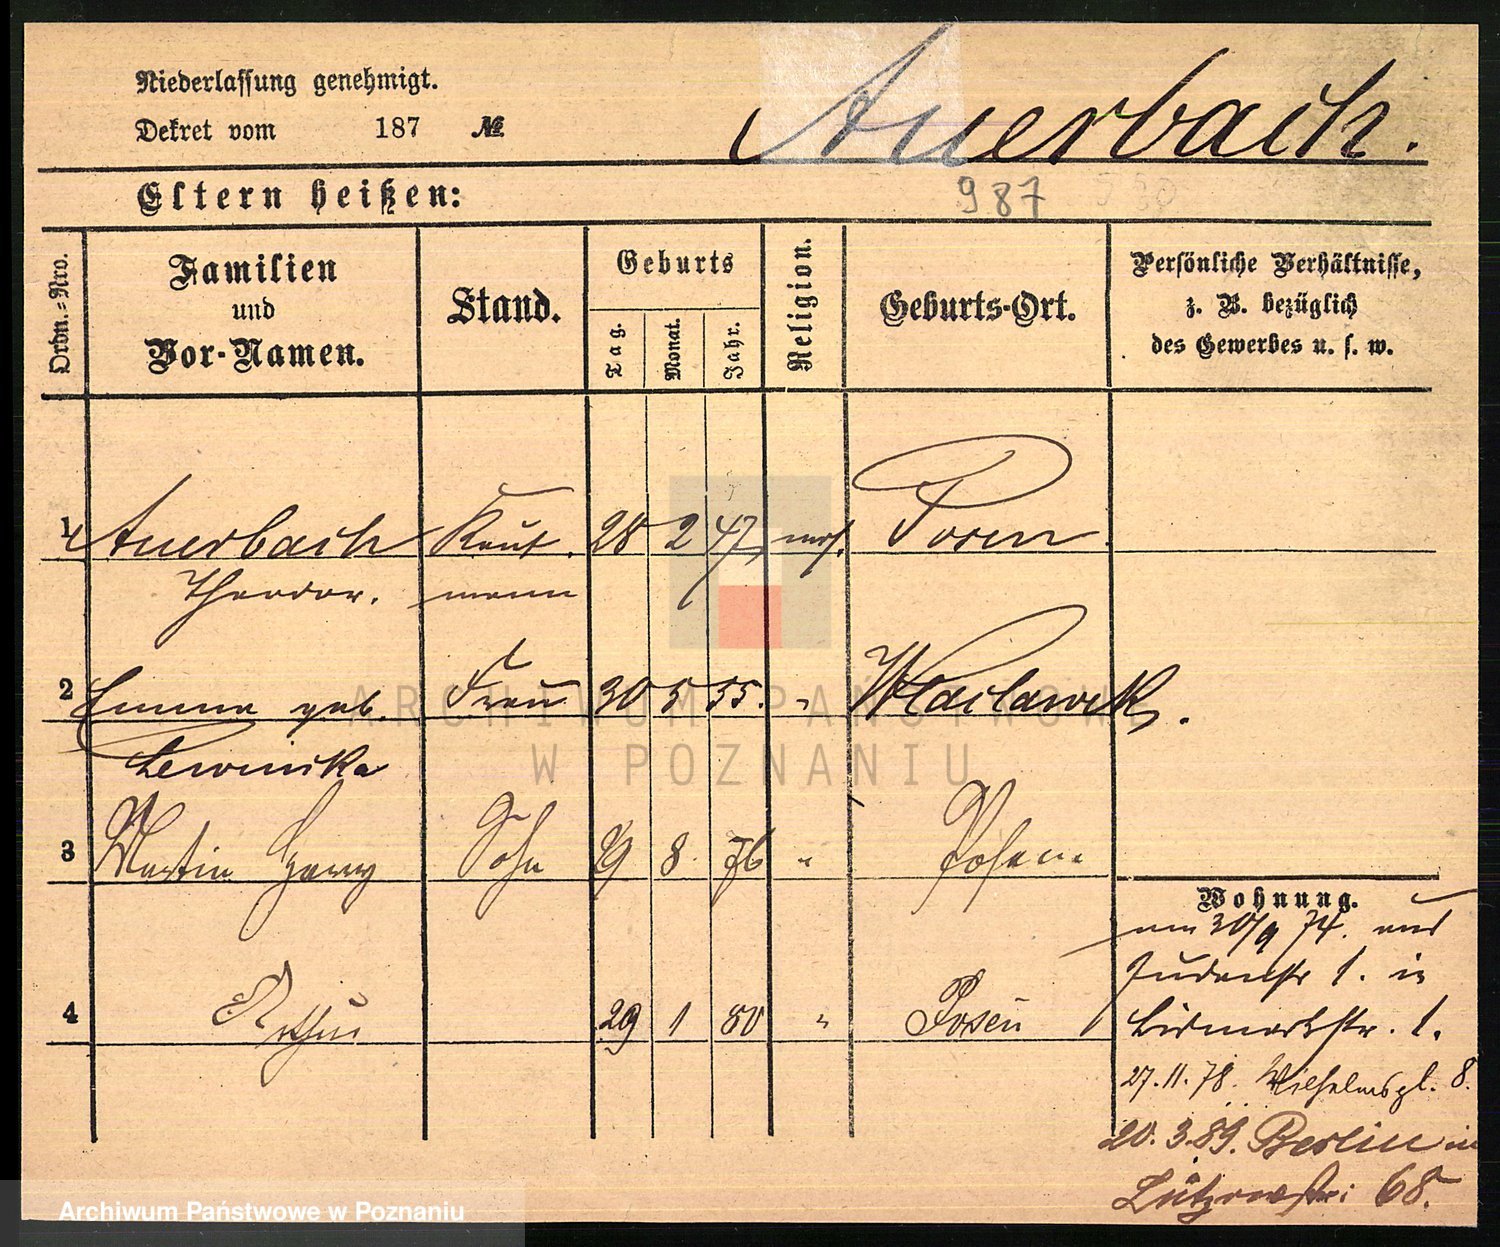 Niederlassung genehmigt.
Dekret vom 187 №
Auerbach.
Eltern heißen:
987
Ordn.=Nro.
Familien
und
Vor-Namen.
Stand.
Geburts
Tag.
Monat.
Jahr.
Religion.
Geburts-Ort.
Persönliche Verhältnisse,
z. B. bezüglich
des Gewerbes u. s. w.
1 Auerbach Kauf 28 2 47 mos. Posen
Theodor. mann
2 Emma geb. Frau 30 5 55. " Wlaclawek.
Lewinska
3 Martin Georg Sohn 9 8. 76 " Posen
4 Arthur 29 1 80 " Posen
Wohnung.
am 30/9 74. aus
Judenstr 1. in
Bismarkstr. 1.
27.11.78. Wilhelmspl. 8.
20.3.89. Berlin in
Lützowstr: 68.
ARCHIWUM PAŃSTWOWE
W POZNANIU
Archiwum Państwowe w Poznaniu